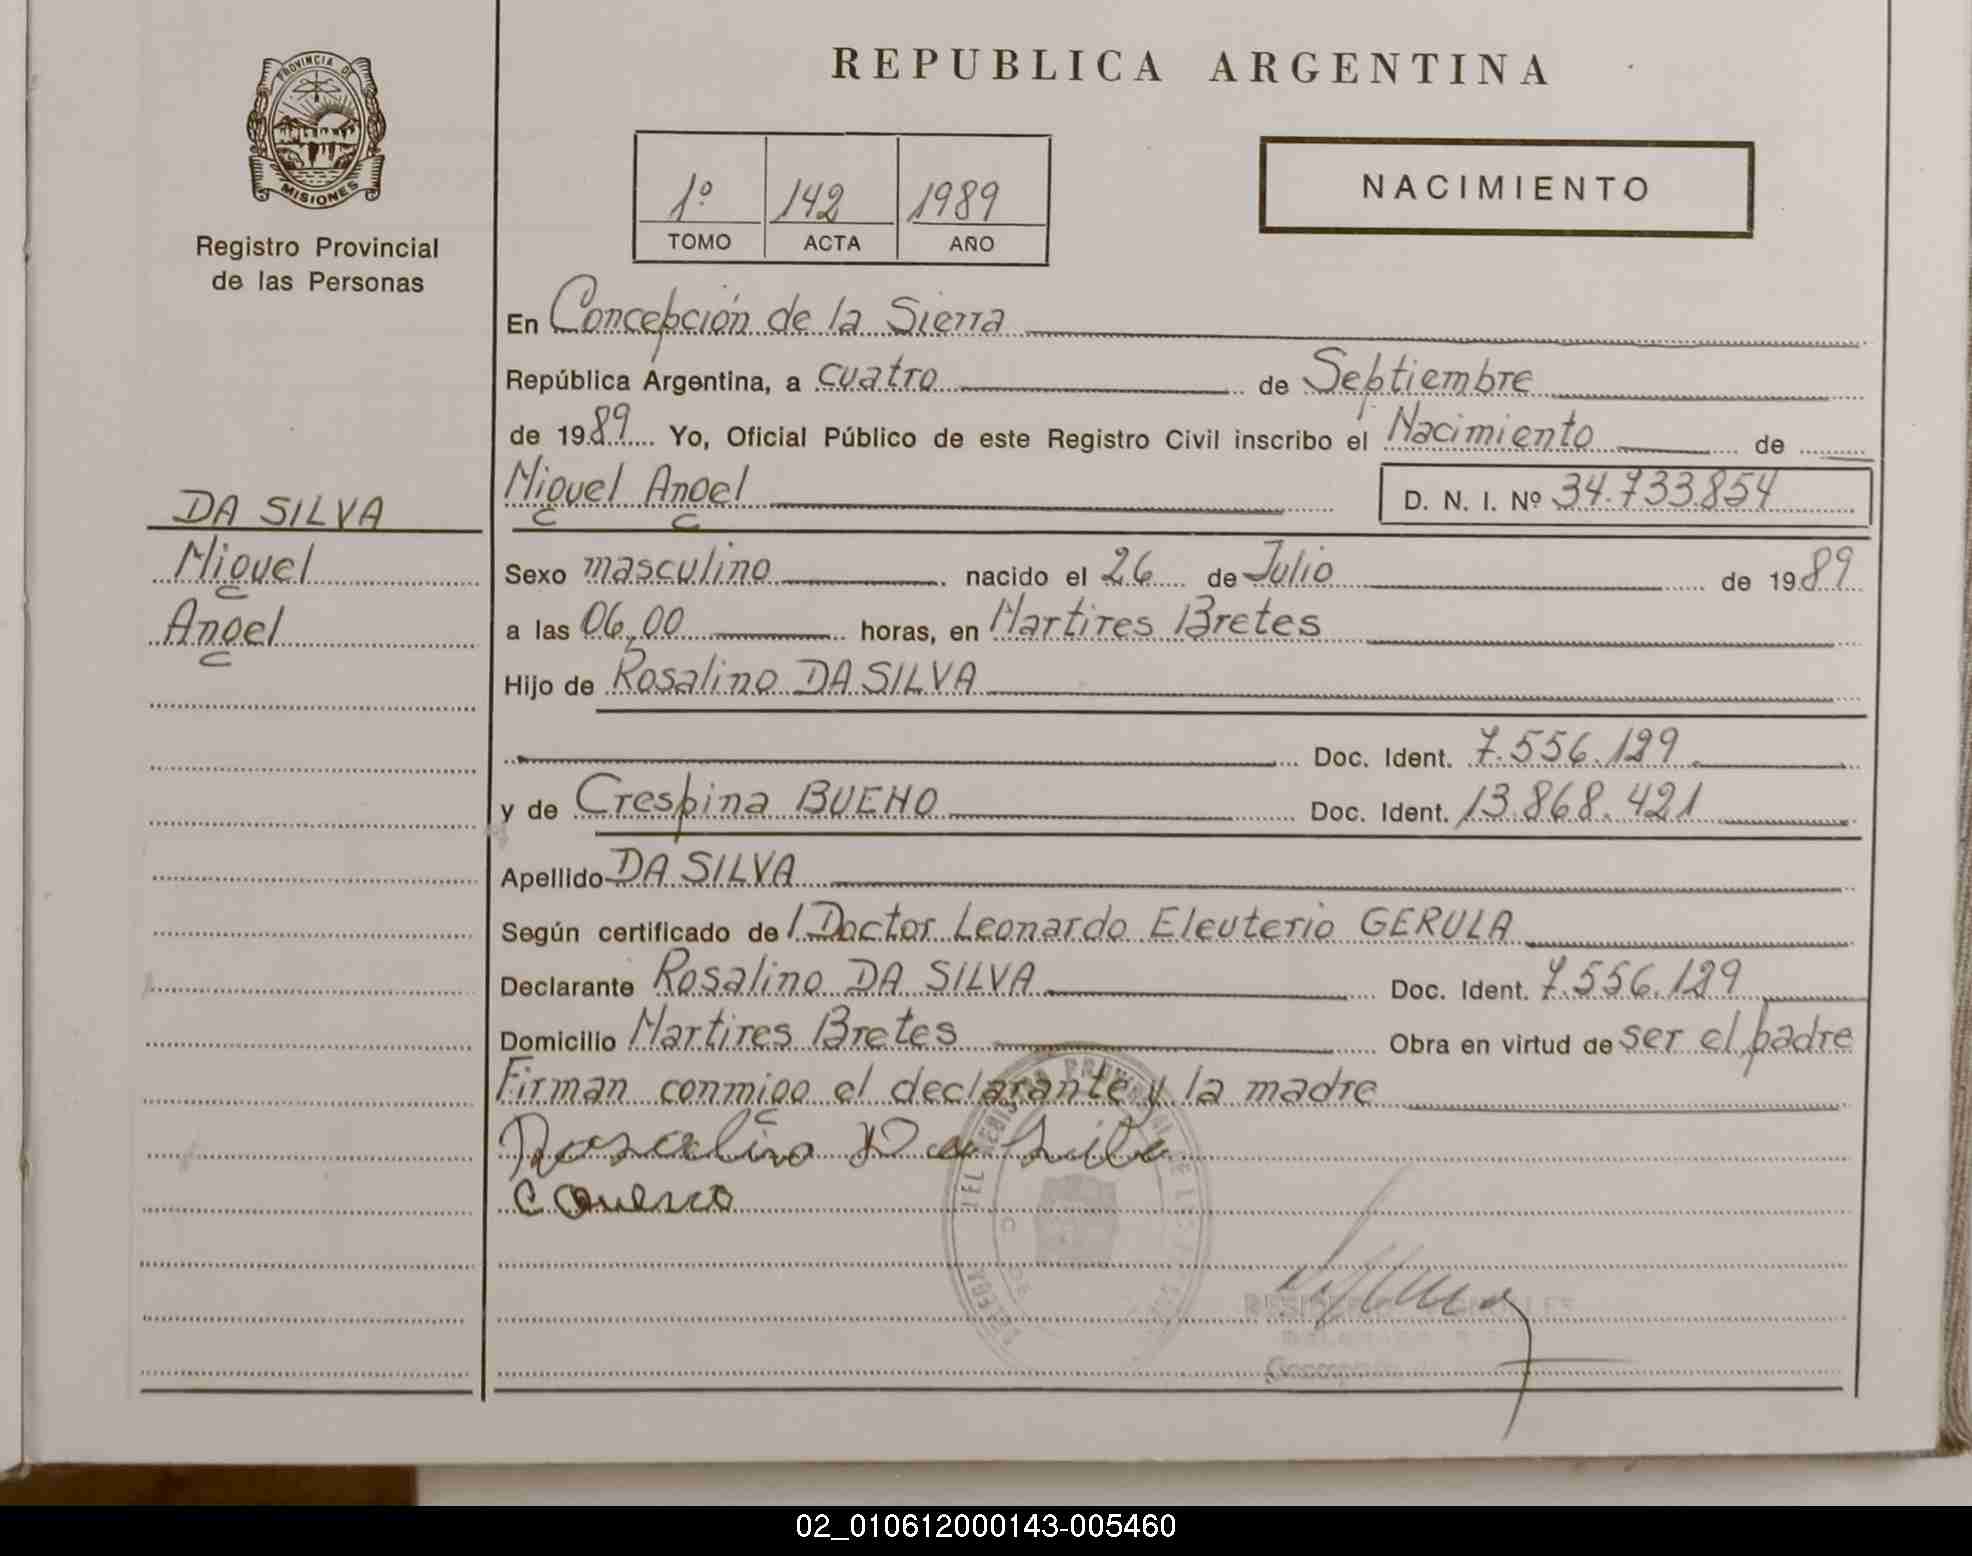 PROVINCIA DE
MISIONES
Registro Provincial
de las Personas
DA SILVA
Miguel
Angel
REPUBLICA ARGENTINA
1º 142 1989
TOMO ACTA AÑO
NACIMIENTO
En Concepción de la Sierra
República Argentina, a cuatro de Septiembre
de 1989 Yo, Oficial Público de este Registro Civil inscribo el Nacimiento de
Miguel Angel D. N. I. Nº 34.733.854
Sexo masculino nacido el 26 de Julio de 1989
a las 06,00 horas, en Martires Bretes
Hijo de Rosalino DA SILVA
Doc. Ident. 7.556.129
y de Crespina BUENO Doc. Ident. 13.868.421
Apellido DA SILVA
Según certificado de l Doctor Leonardo Eleuterio GERULA
Declarante Rosalino DA SILVA Doc. Ident. 7.556.129
Domicilio Martires Bretes Obra en virtud de ser el padre
Firman conmigo el declarante y la madre
Rosalino Da Silva
02_010612000143-005460